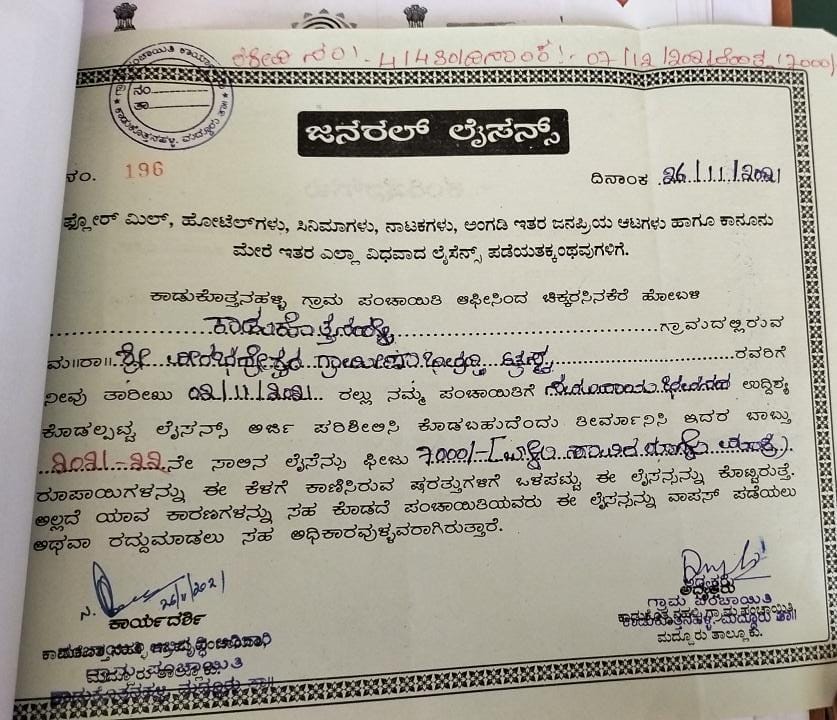 ರಶೀದಿ ನಂ:- 4/430/ದಿನಾಂಕ:- 07/12/2021 (7000/
ಕಾಡುಕೊತ್ತನಹಳ್ಳಿ, ಮದ್ದೂರು ತಾ॥
ನಂ.
ತಾ.
ಜನರಲ್ ಲೈಸನ್ಸ್
ನಂ. 196
ದಿನಾಂಕ 26/11/2021
ಫ್ಲೋರ್ ಮಿಲ್, ಹೋಟೆಲ್‌ಗಳು, ಸಿನಿಮಾಗಳು, ನಾಟಕಗಳು, ಅಂಗಡಿ ಇತರ ಜನಪ್ರಿಯ ಆಟಗಳು ಹಾಗೂ ಕಾನೂನು
ಮೇರೆ ಇತರ ಎಲ್ಲಾ ವಿಧವಾದ ಲೈಸೆನ್ಸ್ ಪಡೆಯತಕ್ಕಂಥವುಗಳಿಗೆ.
ಕಾಡುಕೊತ್ತನಹಳ್ಳಿ ಗ್ರಾಮ ಪಂಚಾಯಿತಿ ಆಫೀಸಿಂದ ಚಿಕ್ಕರಸಿನಕೆರೆ ಹೋಬಳಿ
ಕಾಡುಕೊತ್ತನಹಳ್ಳಿ ಗ್ರಾಮದಲ್ಲಿರುವ
ಮ॥ರಾ॥ ಶ್ರೀ ವೀರಭದ್ರೇಶ್ವರ ಗ್ರಾಮೀಣ ರವರಿಗೆ
ನೀವು ತಾರೀಖು 02/11/2021 ರಲ್ಲು ನಮ್ಮ ಪಂಚಾಯಿತಿಗೆ ಉದ್ದಿಶ್ಯ
ಕೊಡಲ್ಪಟ್ಟ ಲೈಸನ್ಸ್ ಅರ್ಜಿ ಪರಿಶೀಲಿಸಿ ಕೊಡಬಹುದೆಂದು ತೀರ್ಮಾನಿಸಿ ಇದರ ಬಾಬ್ತು
2021-22 ನೇ ಸಾಲಿನ ಲೈಸೆನ್ಸು ಫೀಜು 7000/- [ಏಳು ಸಾವಿರ ರೂಗಳು ಮಾತ್ರ)
ರೂಪಾಯಿಗಳನ್ನು ಈ ಕೆಳಗೆ ಕಾಣಿಸಿರುವ ಷರತ್ತುಗಳಿಗೆ ಒಳಪಟ್ಟು ಈ ಲೈಸನ್ಸನ್ನು ಕೊಟ್ಟಿರುತ್ತೆ.
ಅಲ್ಲದೆ ಯಾವ ಕಾರಣಗಳನ್ನು ಸಹ ಕೊಡದೆ ಪಂಚಾಯಿತಿಯವರು ಈ ಲೈಸನ್ಸನ್ನು ವಾಪಸ್ ಪಡೆಯಲು
ಅಥವಾ ರದ್ದುಮಾಡಲು ಸಹ ಅಧಿಕಾರವುಳ್ಳವರಾಗಿರುತ್ತಾರೆ.
26/11/2021
ಕಾರ್ಯದರ್ಶಿ
ಅಧ್ಯಕ್ಷರು
ಗ್ರಾಮ ಪಂಚಾಯಿತಿ
ಕಾಡುಕೊತ್ತನಹಳ್ಳಿ, ಮದ್ದೂರು ತಾ॥
ಮದ್ದೂರು ತಾಲ್ಲೂಕು.